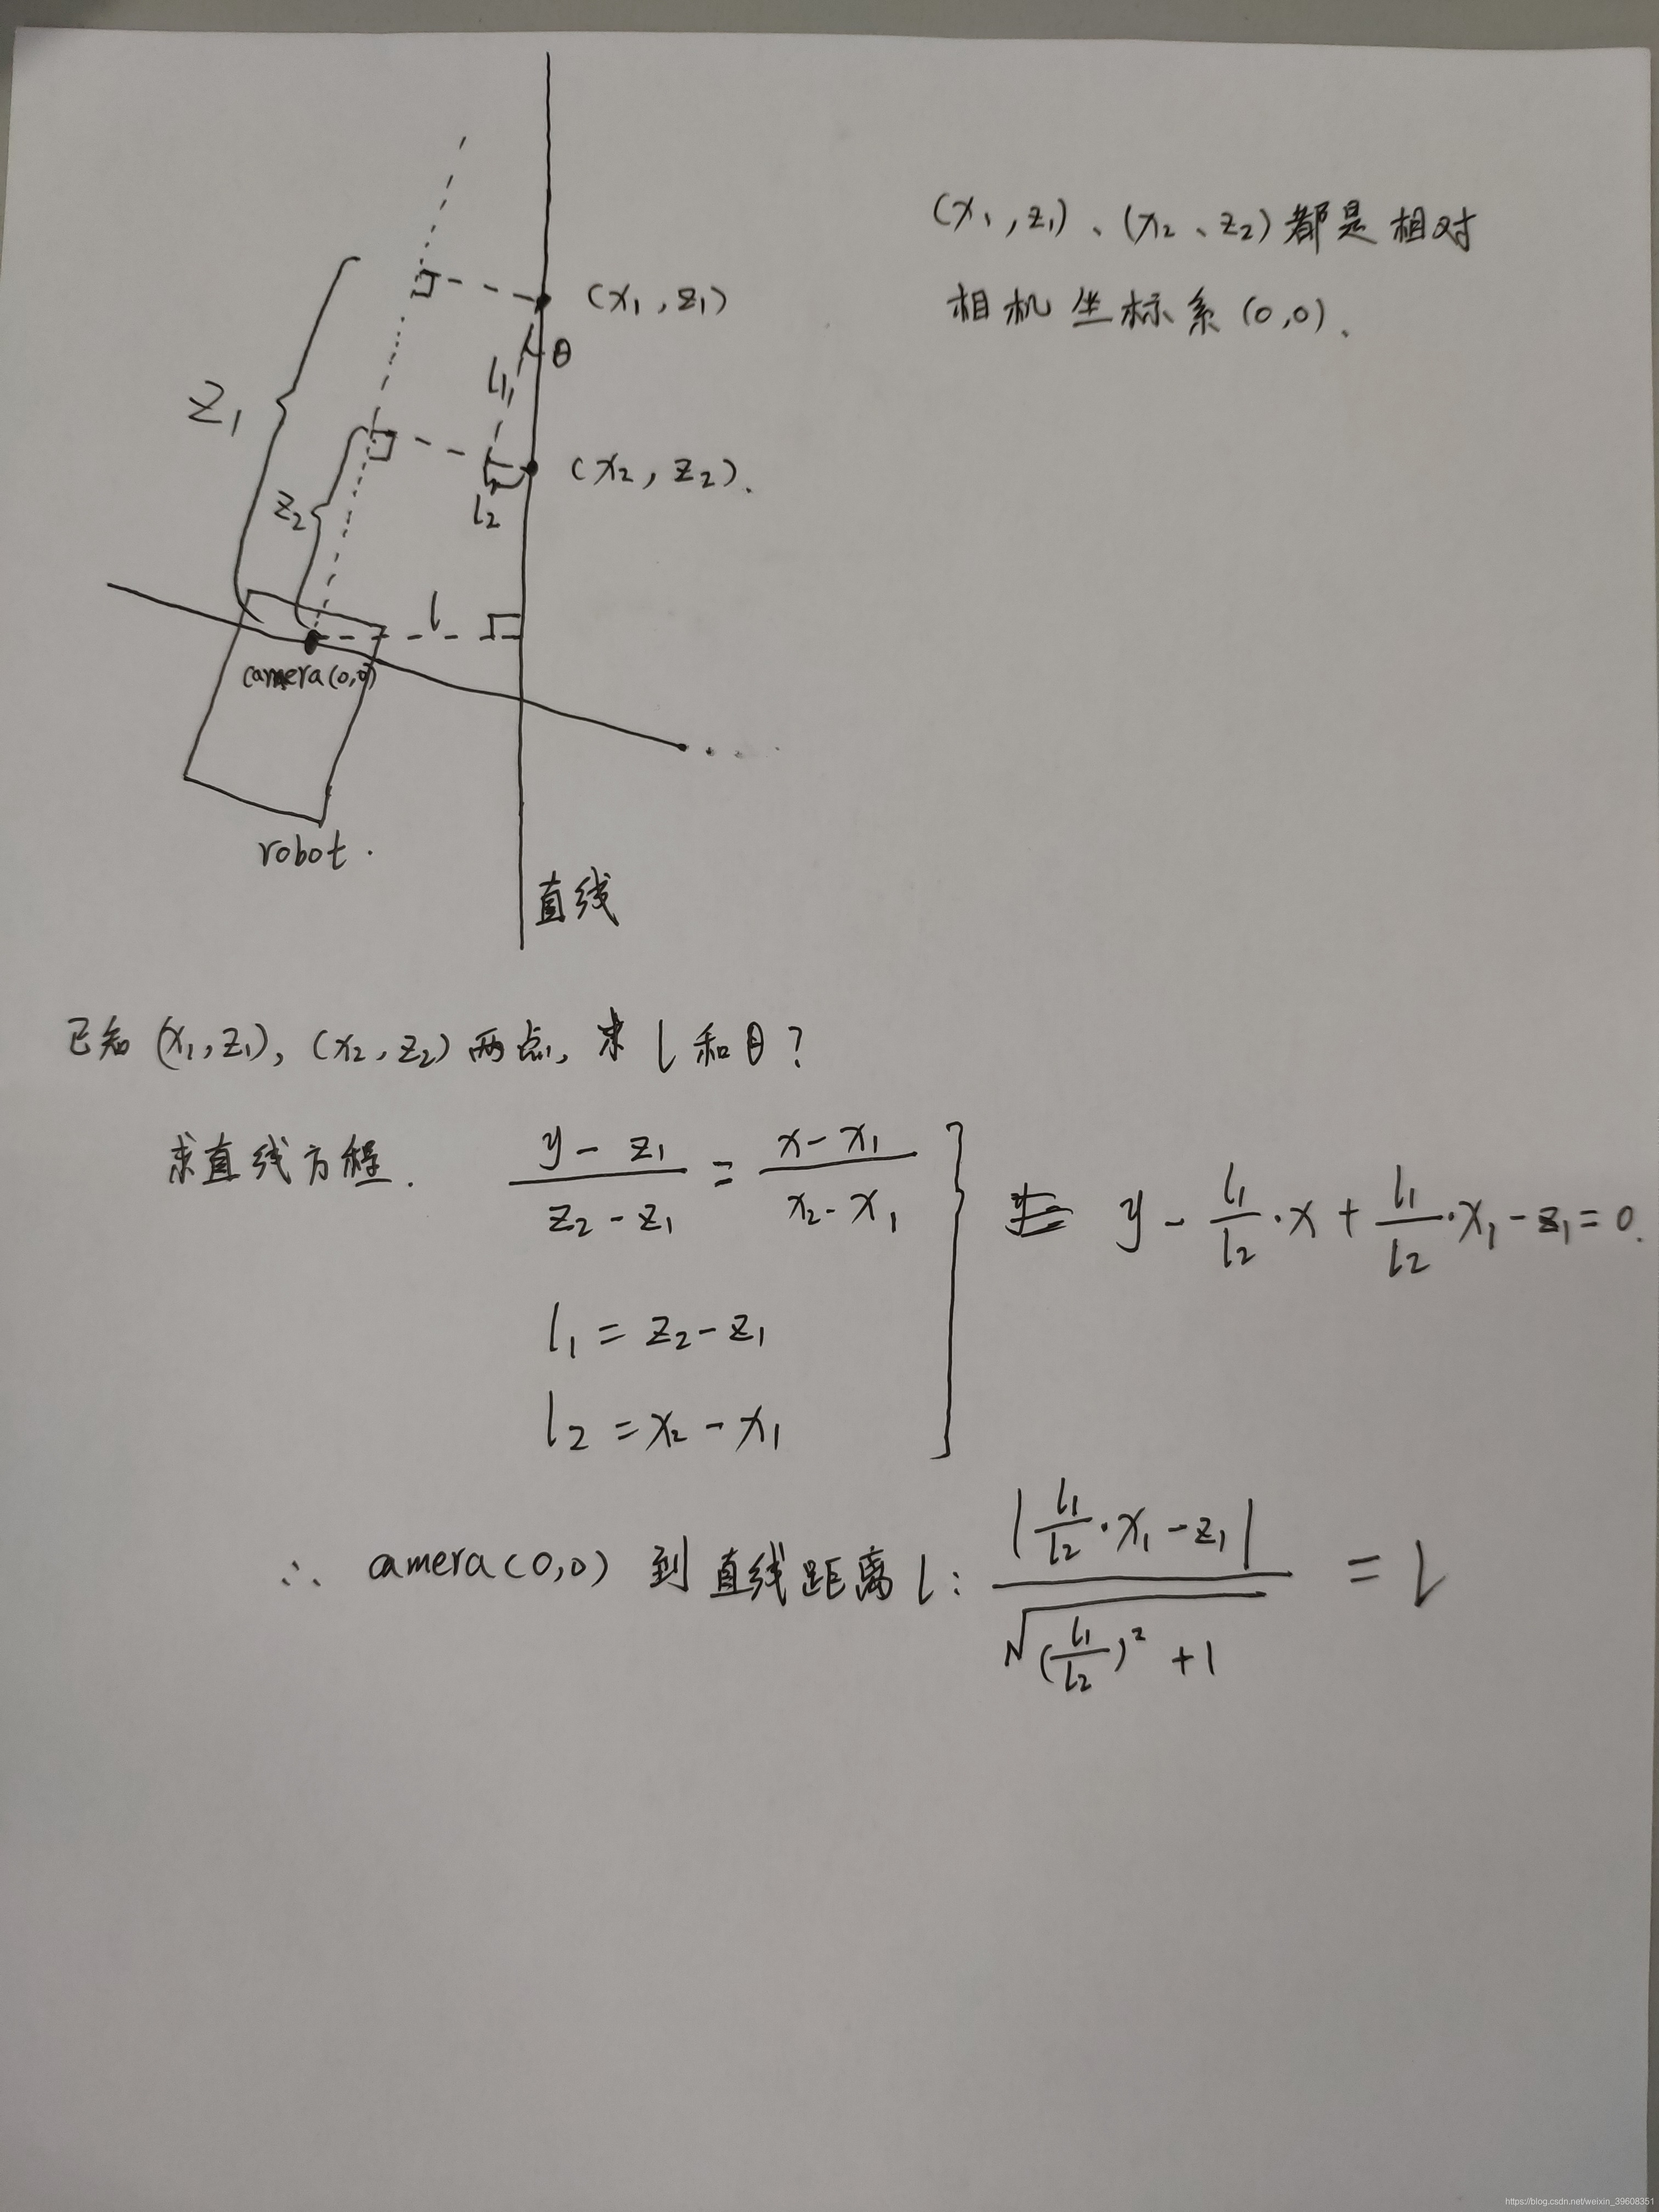 (x₁,z₁)、(x₂、z₂)都是相对
相机坐标系(0,0).
(x₁,z₁)
θ
l₁
Z₁
(x₂,z₂).
z₂
l₂
l
camera(0,0)
robot.
直线
已知(x₁,z₁),(x₂,z₂)两点,求l和θ?
求直线方程. (y-z₁)/(z₂-z₁) = (x-x₁)/(x₂-x₁) } y - l₁/l₂·x + l₁/l₂·x₁ - z₁ = 0.
l₁ = z₂-z₁
l₂ = x₂-x₁
∴ camera(0,0) 到直线距离l: |l₁/l₂·x₁-z₁| / √((l₁/l₂)²+1) = l
https://blog.csdn.net/weixin_39608351